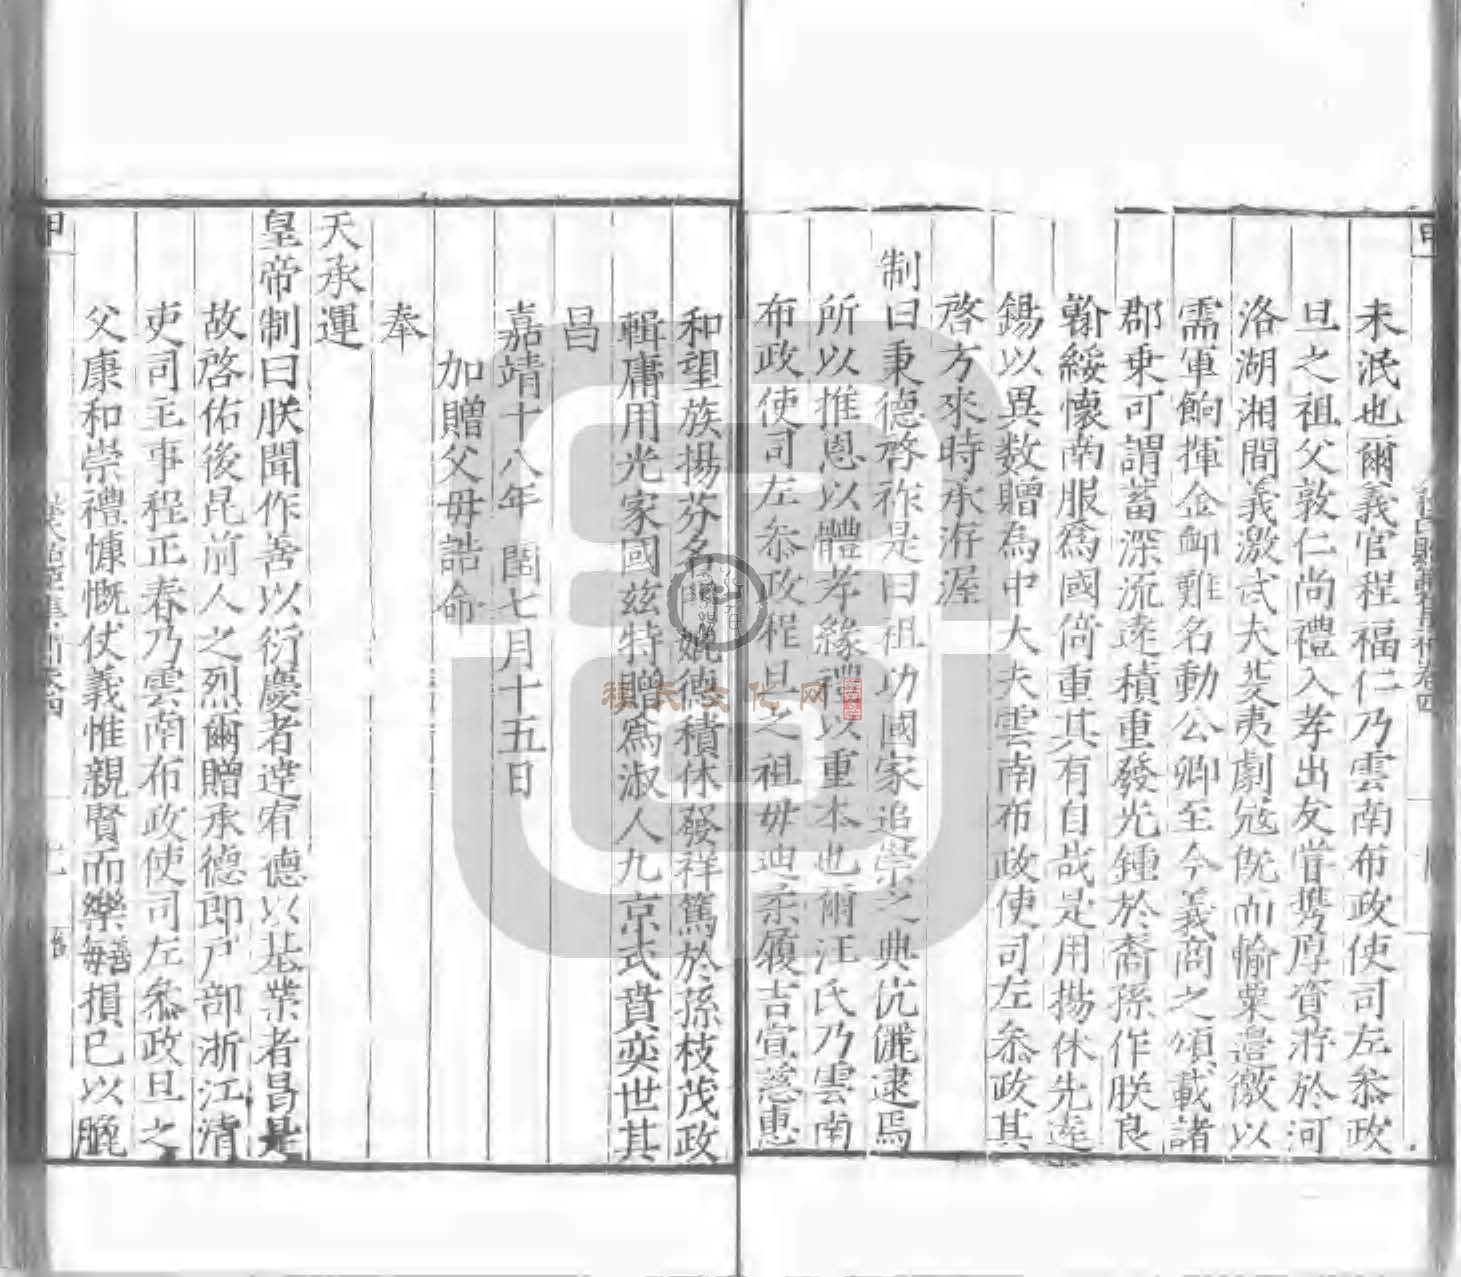 未泯也爾義官程福仁乃雲南布政使司左叅政
旦之祖父敦仁尚禮入孝出友嘗携厚資游於河
洛湖湘間義激武夫芟夷劇冦旣而輸粟邊徼以
需軍餉揮金卹難名動公卿至今義商之頌載諸
郡乗可謂蓄深流逺積重發光鍾於裔孫作朕良
翰綏懷南服爲國倚重其有自哉是用揚休先
錫以異数贈爲中大夫雲南布政使司左叅政其
啓方來時承洊渥
制曰秉德啓祚是曰祖功國家追崇之典伉儷逮焉
所以推恩以體孝緣禮以重本也爾汪氏乃雲南
布政使司左叅政程旦之祖毋迪柔履吉宣慈惠
和望族揚芬名姚德積休發祥篤於孫枝茂政
輯庸用光家國兹特贈爲淑人九京式賁奕世其
昌
嘉靖十八年閏七月十五日
加贈父毋誥命
奉
天承運
皇帝制曰朕聞作善以衍慶者逹宥德以基業者昌是
故啓佑後昆前人之烈爾贈承德郎户部浙江清
吏司主事程正春乃雲南布政使司左叅政旦之
父康和崇禮慷慨仗義惟親賢而樂善每損已以
程氏文化网